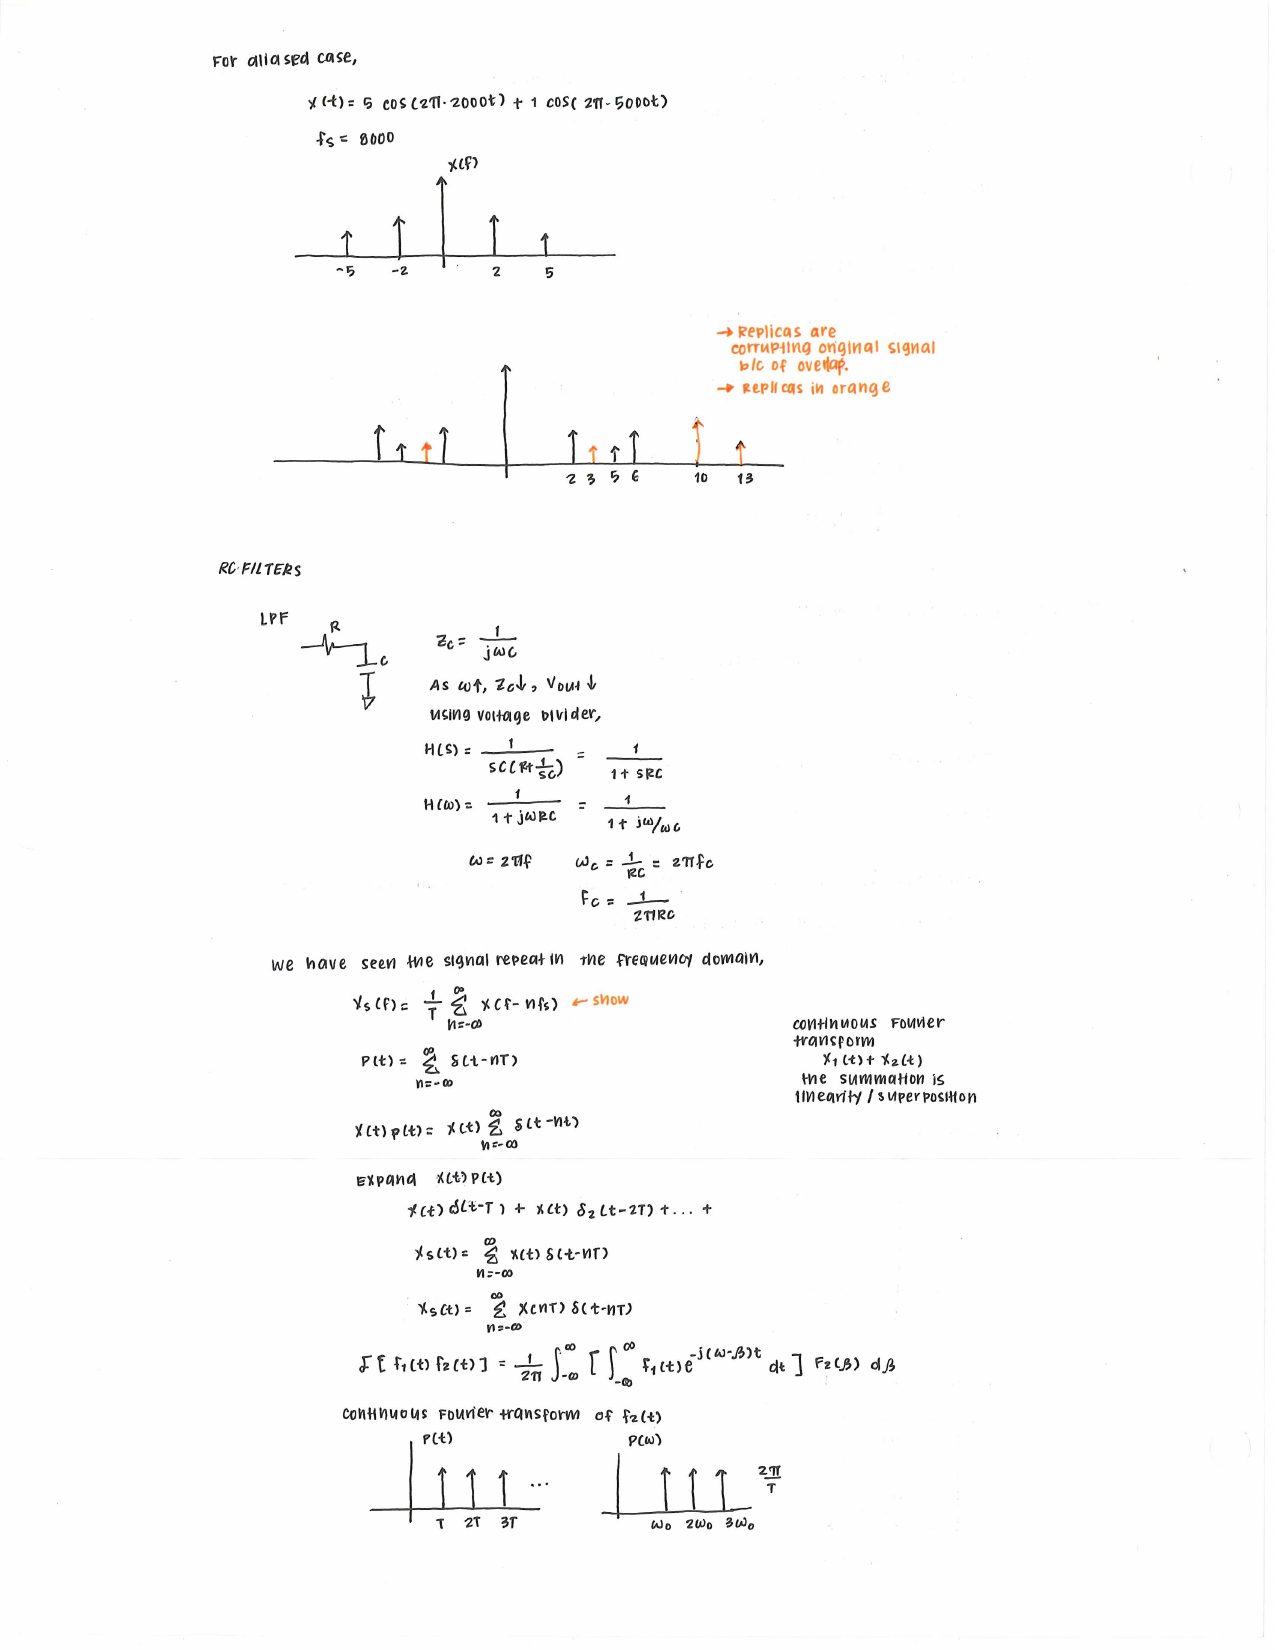 For aliased case,
x(t) = 5 cos(2π·2000t) + 1 cos(2π-5000t)
fs = 8000
X(f)
-5 -2 2 5
→ Replicas are
corrupting original signal
b/c of overlap.
→ Replicas in orange
2 3 5 6 10 13
RC FILTERS
LPF
R
C
Zc = 1/jωC
As ω↑, Zc↓, Vout ↓
using voltage divider,
H(S) = 1/SC(R+1/SC) = 1/1+SRC
H(ω) = 1/1+jωRC = 1/1+jω/ωc
ω = 2πf ωc = 1/RC = 2πfc
Fc = 1/2πRC
We have seen the signal repeat in the frequency domain,
Xs(f) = 1/T ∑ n=-∞ ∞ X(f-nfs) ← show
P(t) = ∑ n=-∞ ∞ δ(t-nT)
X(t)p(t) = X(t) ∑ n=-∞ ∞ δ(t-nt)
continuous Fourier
transform
X1(t) + X2(t)
the summation is
linearity / superposition
Expand X(t)P(t)
X(t)δ(t-T) + X(t) δ2(t-2T) + ... +
Xs(t) = ∑ n=-∞ ∞ X(t) δ(t-nT)
Xs(t) = ∑ n=-∞ ∞ X(nT) δ(t-nT)
F[f1(t) f2(t)] = 1/2π ∫-∞ ∞ [∫-∞ ∞ f1(t)e^-j(ω-β)t dt] F2(β) dβ
continuous Fourier transform of f2(t)
P(t) P(ω)
... 2π/T
T 2T 3T ω0 2ω0 3ω0